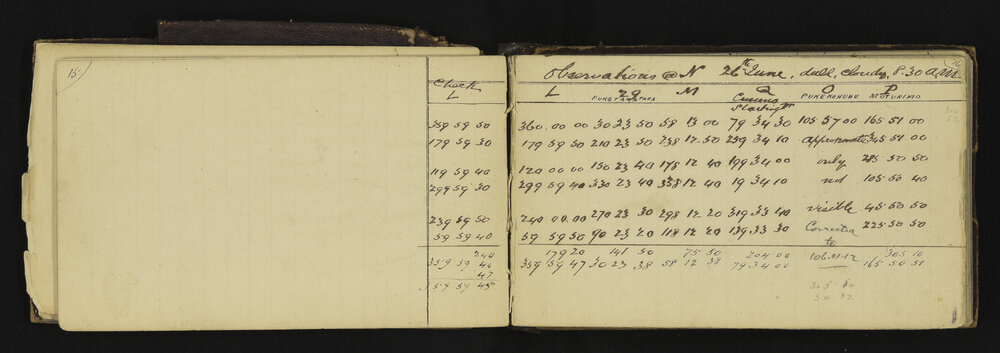 15
Check
L
359 59 50
179 59 30
119 59 40
299 59 30
239 59 50
59 59 40
240
359 59 40
47
359 59 45
Observations @ N 26th June, dull, cloudy, 8.30 a.m.
L 29 M Q O P
PUKETARATA PUKEKOHUHU MOTUKINO
360 00 00 30 23 50 58 13 00 79 34 30 105 57 00 165 51 00
179 59 50 210 23 50 238 12 50 259 34 10 approximate 345 51 00
120 00 00 150 23 40 178 12 40 199 34 00 only 285 50 50
299 59 40 330 23 40 358 12 40 19 34 10 not 105 50 40
240 00 00 270 23 30 298 12 20 319 33 40 visible 45 50 50
59 59 50 90 23 20 118 12 20 139 33 30 Correction 225 50 50
to
1720 141 50 75 50 204 00 106.01.12 305 10
359 59 47 30 23 38 58 12 38 79 34 00 165 50 51
305 10
50 52